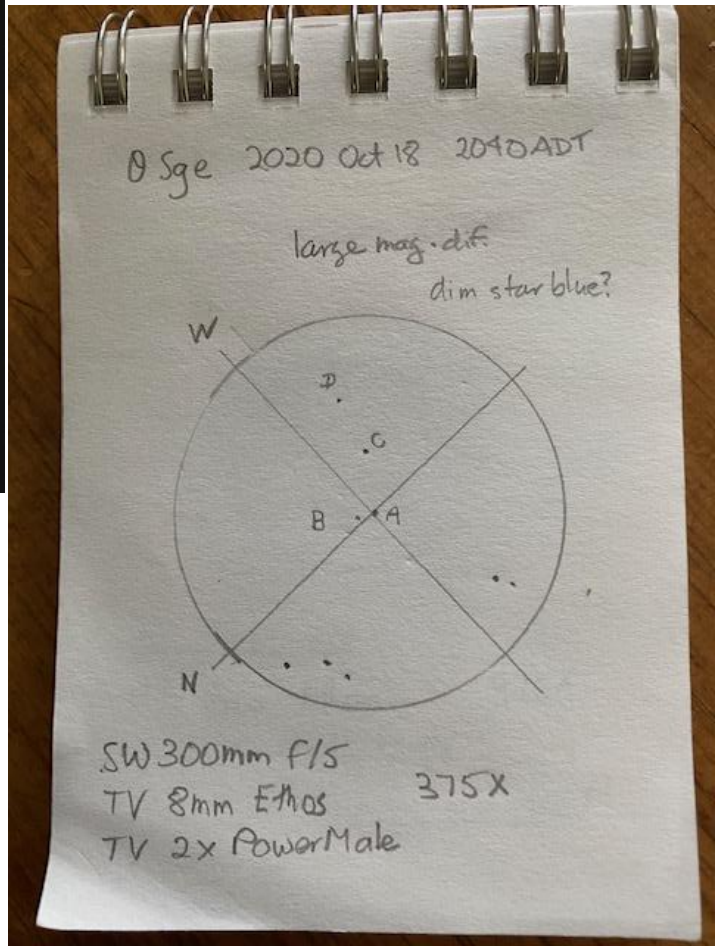 θ Sge 2020 Oct 18 2040 ADT
large mag. dif.
dim star blue?
W
D
C
B A
N
SW 300mm F/5
TV 8mm Ethos 375X
TV 2x PowerMate